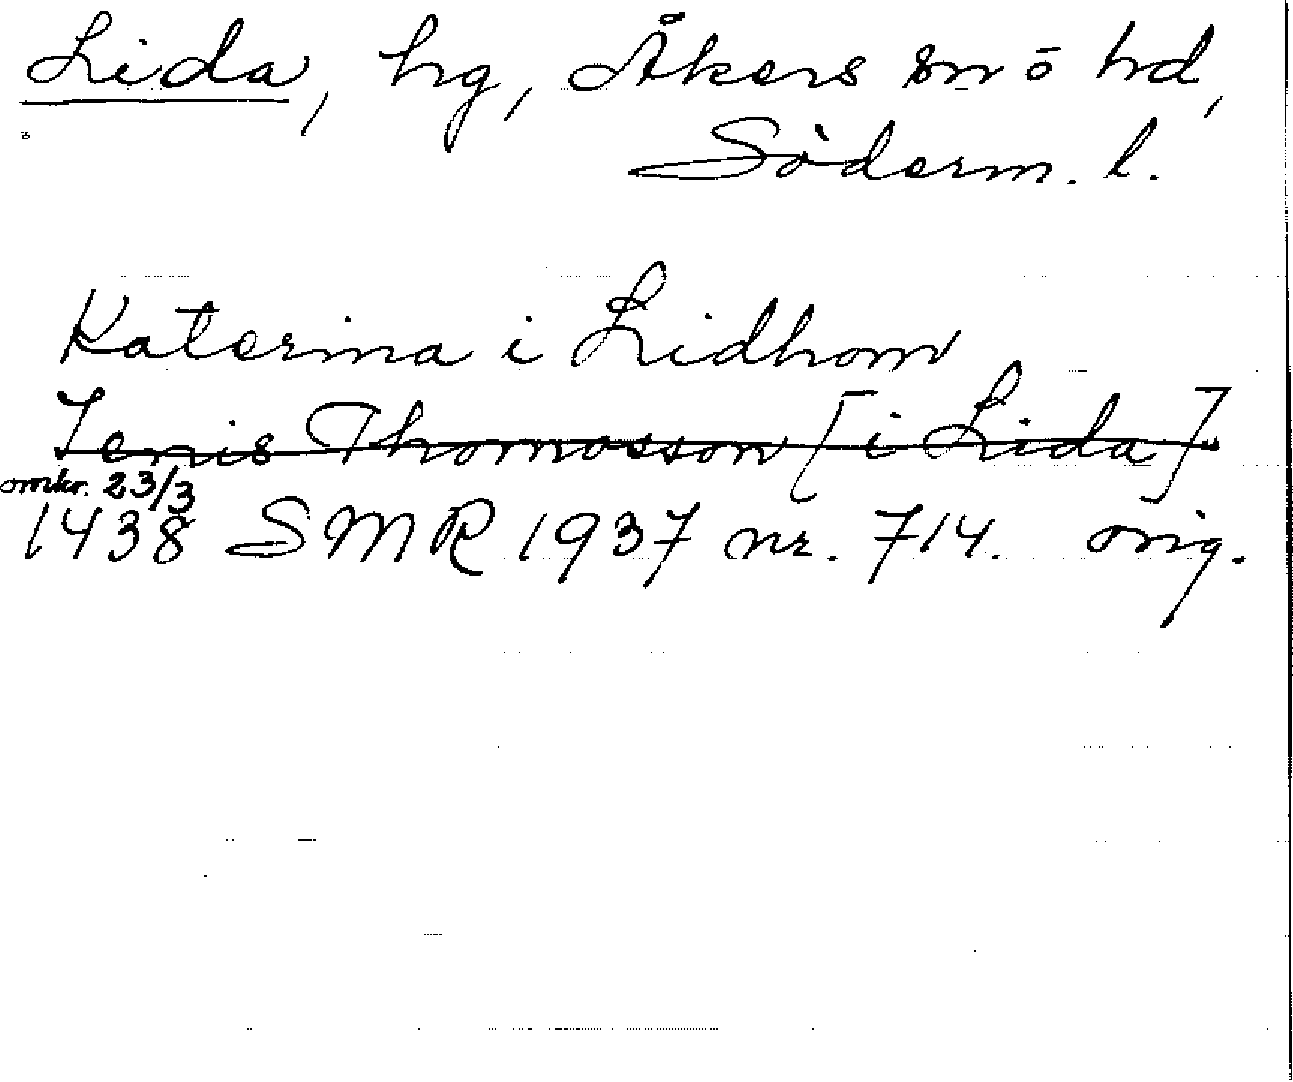 Lida, hg, Åkers sn o hd,
Söderm. l.
Katerina i Lidhom
Jenis Thomosson [i Lida]
omkr. 23/3
1438 SMR 1937 nr. 714. orig.